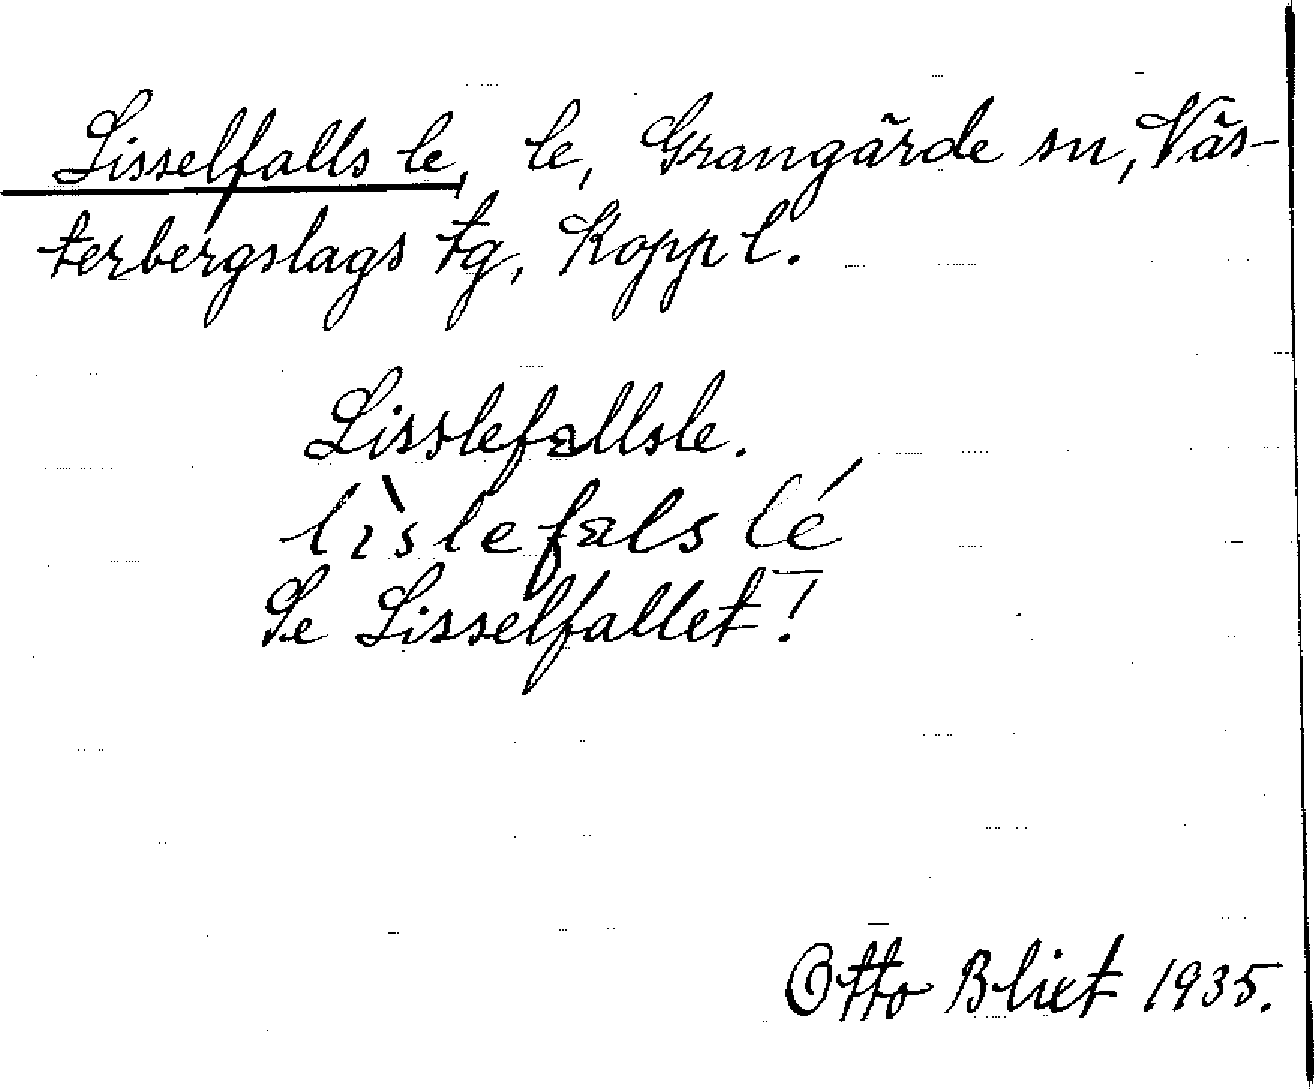 Lisselfalls le, le, Grangärde sn, Väs-
terbergslags tg, Kopp l.
Lisslefallsle.
lìslefals lé
Se Lisselfallet!
Otto Blixt 1935.